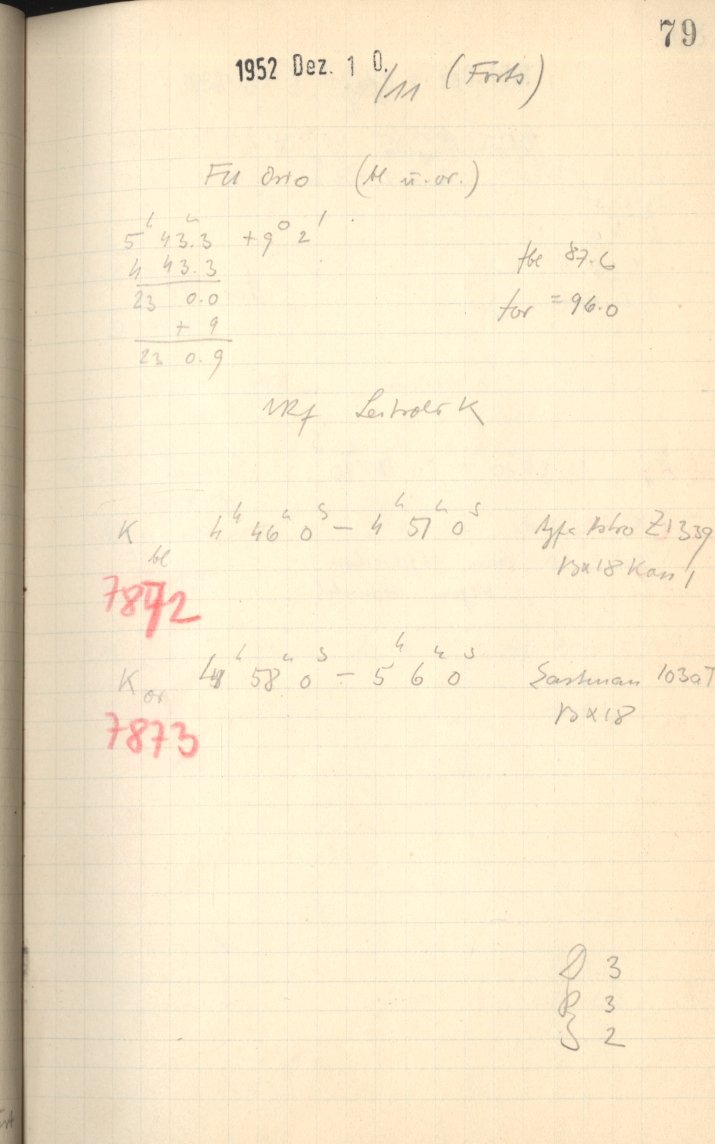 79
1952 Dez. 1 0./11 (Forts)
FU Orio (bl u. or.)
5h 43.3m +9° 2'
4 43.3
23 0.0
+ 9
23 0.9
fbl 87.6
for = 96.0
NRf Leitrohr K
K bl 4h 46m 0s – 4h 51m 0s Agfa Astro Z1339
13x18 Kass 1
7872
K or 4h 58m 0s – 5h 6m 0s Eastman 103aT
13x18
7873
D 3
R 3
S 2